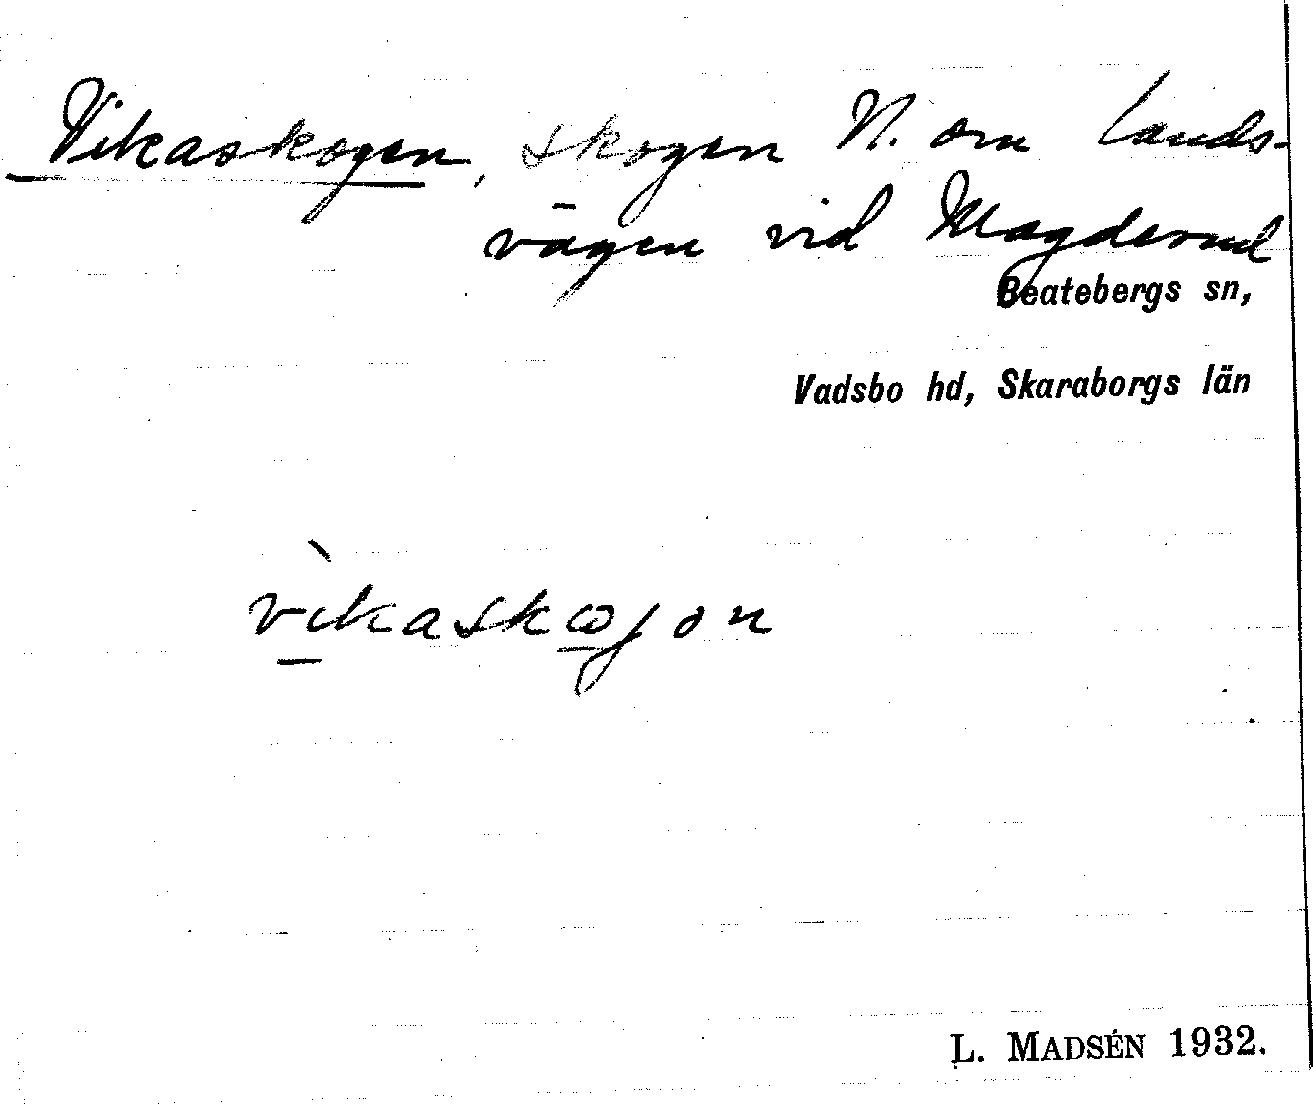 Vikaskogen, skogen N. om lands-
vägen vid Magderud
Beatebergs sn,
Vadsbo hd, Skaraborgs län
vìkaskωjon
L. MADSÉN 1932.